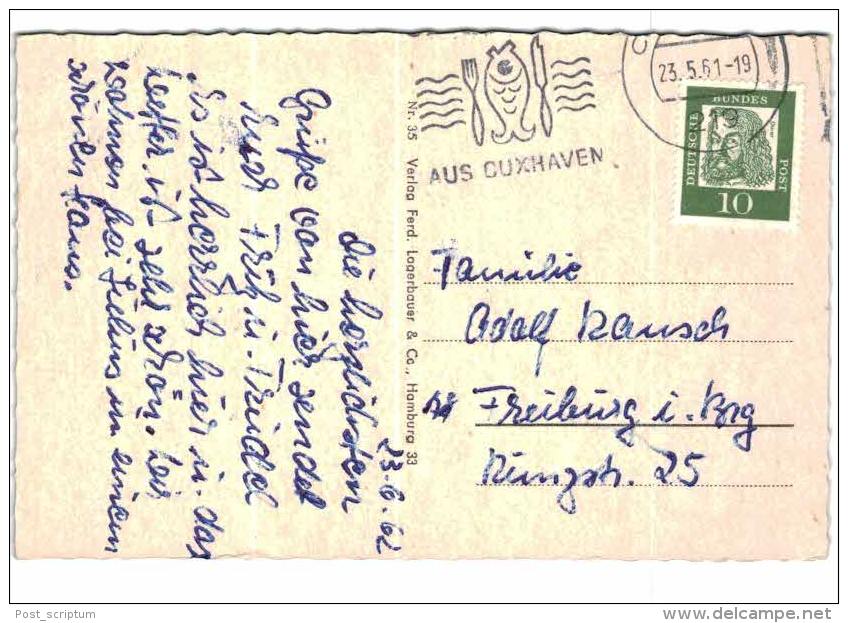 23.5.61-19
AUS CUXHAVEN
DEUTSCHE BUNDES POST
10
23.6.62
Die herzlichsten
Grüße von hier sendet
Euch Fritz u. Trudel
Es ist herrlich hier u. das
Wetter ist sehr schön. Wir
wohnen bei in einem
schönen Haus.
Nr. 35 Verlag Ferd. Lagerbauer & Co., Hamburg 33
Familie
Adolf Rausch
Freiburg i. Brg
Ringstr. 25
Post_scriptum
delcampe.net